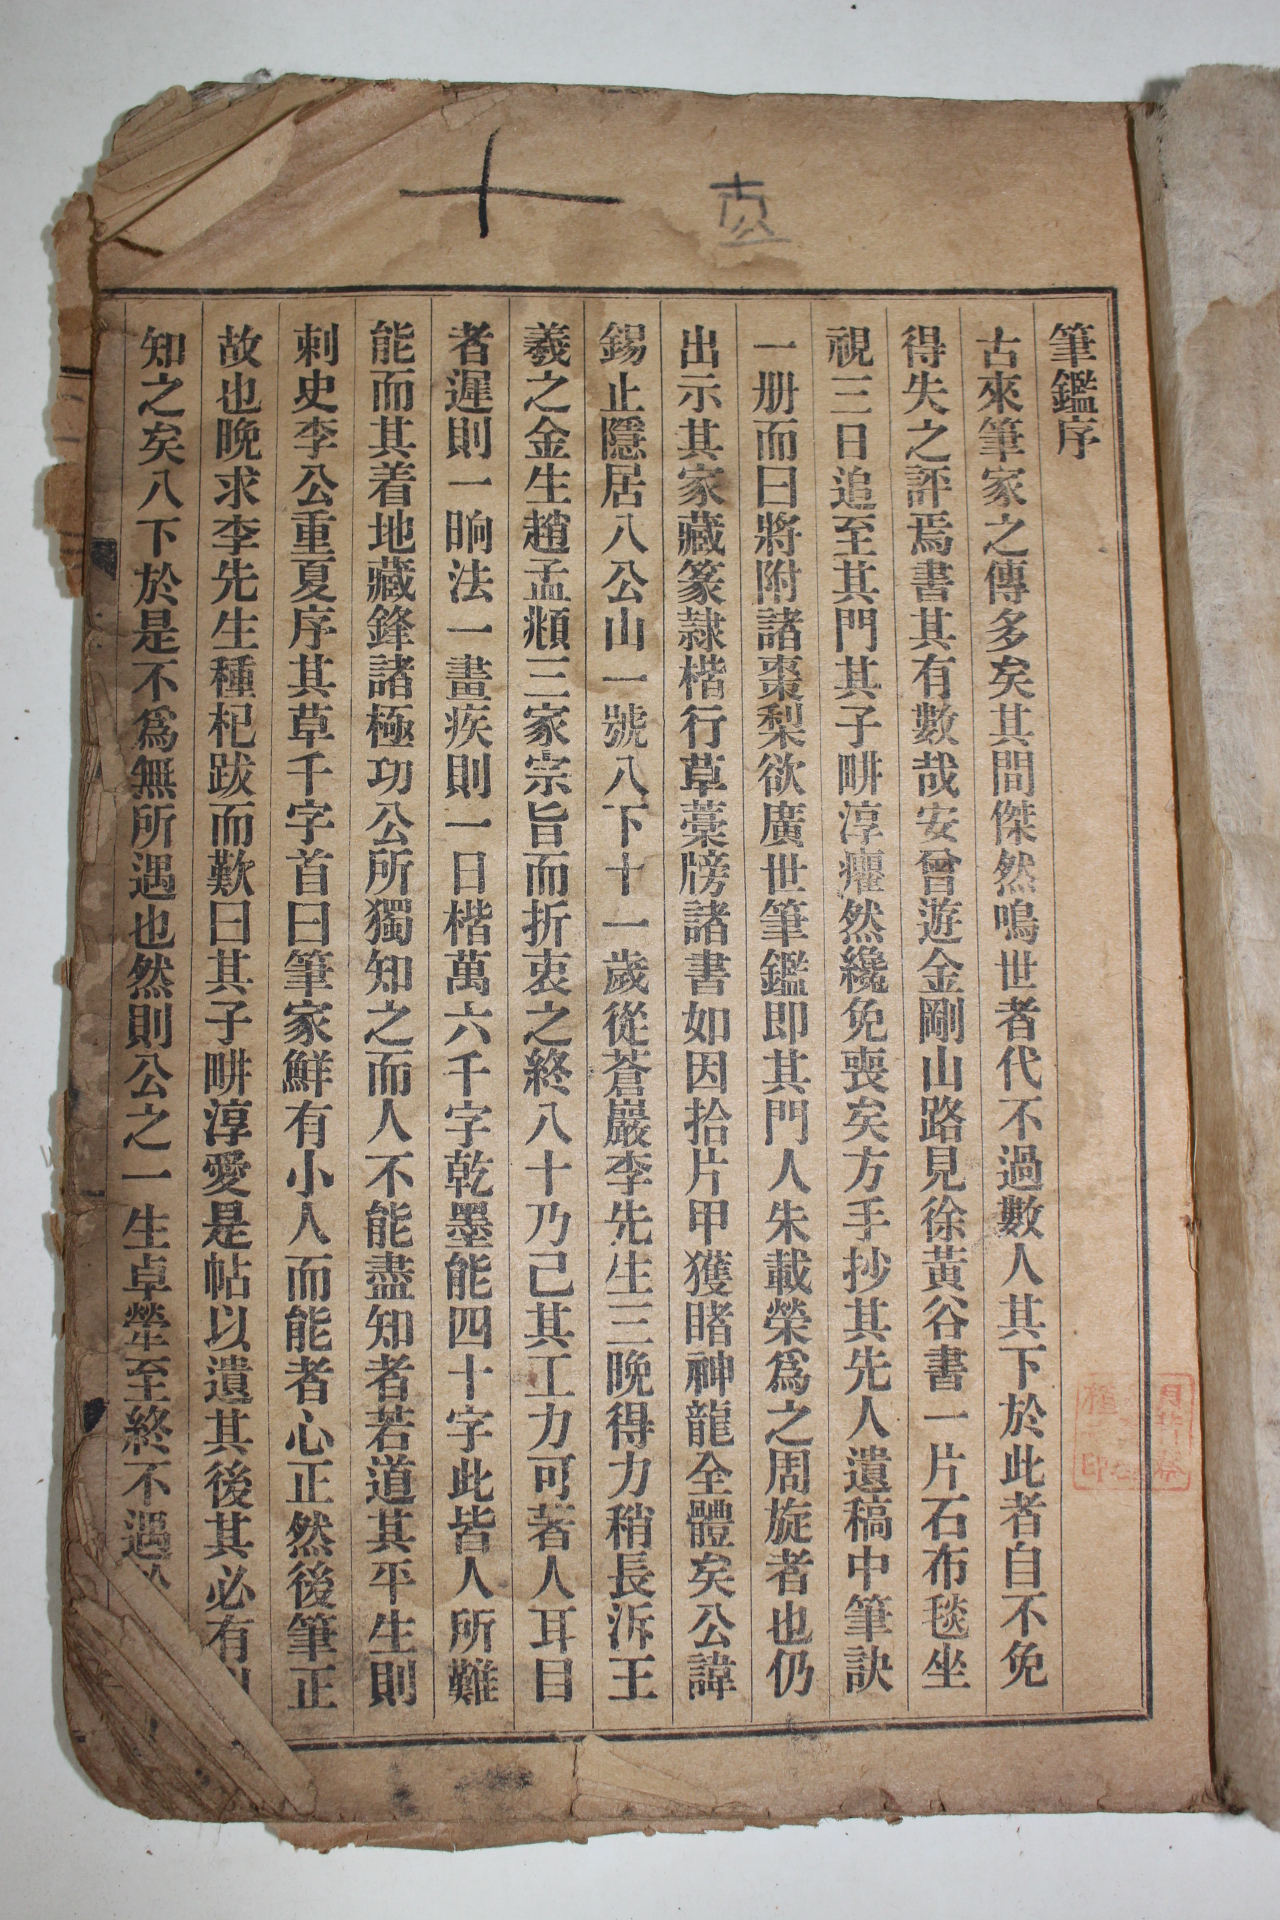 十
筆鑑序
古來筆家之傳多矣其間傑然鳴世者代不過數人其下於此者自不免
得失之評焉書其有數哉安曾遊金剛山路見徐黃谷書一片石布毯坐
視三日追至其門其子畊淳癯然纔免喪矣方手抄其先人遺稿中筆訣
一册而曰將附諸棗梨欲廣世筆鑑即其門人朱載榮爲之周旋者也仍
出示其家藏篆隷楷行草藁牓諸書如因拾片甲獲睹神龍全體矣公諱
錫止隱居八公山一號八下十一歲從蒼巖李先生三晩得力稍長泝王
羲之金生趙孟頫三家宗旨而折衷之終八十乃己其工力可著人耳目
者遲則一晌法一畫疾則一日楷萬六千字乾墨能四十字此皆人所難
能而其着地藏鋒諸極功公所獨知之而人不能盡知者若道其平生則
刺史李公重夏序其草千字首曰筆家鮮有小人而能者心正然後筆正
故也晩求李先生種杞跋而歎曰其子畊淳愛是帖以遺其後其必有
知之矣八下於是不爲無所遇也然則公之一生卓犖至終不遇
印